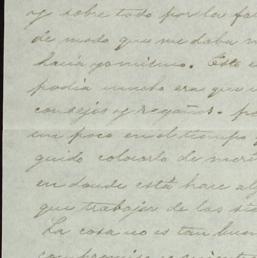 y sobre todo por la fa
de modo que me daba
hacía yo mismo. Este
podía mucho era que
consejos y regaños. po
un poco en el tiempo y
guido colocarla de
en donde está hace al
que trabajar de las
La cosa no es tan buen